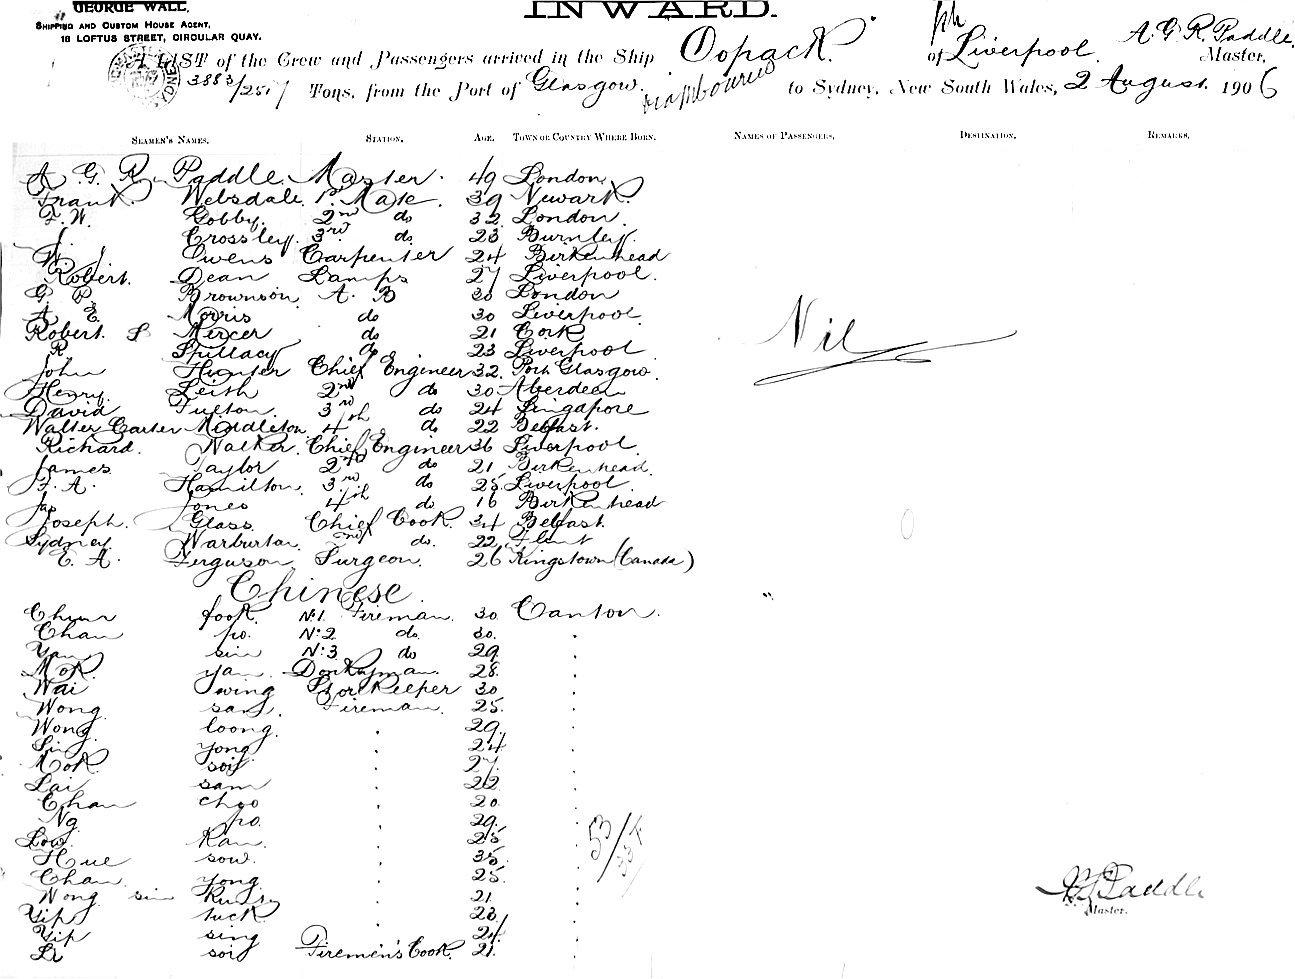 GEORGE WALL,
SHIPPING AND CUSTOM HOUSE AGENT,
18 LOFTUS STREET, CIRCULAR QUAY.
INWARD.
A LIST of the Crew and Passengers arrived in the Ship Oopack of Liverpool, A G R Paddle, Master,
3883/2517 Tons, from the Port of Glasgow. to Sydney, New South Wales, 2 August. 1906
SEAMEN'S NAMES. STATION. AGE. TOWN OR COUNTRY WHERE BORN. NAMES OF PASSENGERS. DESTINATION. REMARKS.
A G R Paddle Master. 49 London
Frank Websdale. 1st Mate. 39 Newark
F. W. Gobby. 2nd do 32 London.
J. Crossley. 3rd do. 23 Burnley.
W. J Owens Carpenter 24 Birkenhead
Robert. Dean Lamps 27 Liverpool.
G P Brownson A. B 30 London
A E Morris do 30 Liverpool
Robert S Mercer do 21 Cork
R Spillacy do 23 Liverpool
John Hunter Chief Engineer 32. Port Glasgow.
Henry. Leith 2nd do 30 Aberdeen
David Fulton. 3rd do 24 Singapore
Walter Carter Middleton 4th do 22 Belfast.
Richard. Walker. Chief Engineer 36 Liverpool
James Taylor 2nd do 21 Birkenhead.
F. A. Hamilton. 3rd do 25. Liverpool.
Jas Jones 4th do 16 Birkenhead
Joseph. Glass. Chief Cook. 34 Belfast.
Sydney. Warburton. 2nd do. 22 Flint
E. A. Ferguson. Surgeon. 26 Kingstown (Canada)
Nil
Chinese
fook. No 1. Fireman. 30. Canton.
Chan po. No 2 do. 30. "
Yan sin No 3 do 29 "
Mok yan. Donkeyman. 28. "
Wai swing Storekeeper 30 "
Wong sang. Fireman. 25. "
Wong loong. " 29. "
yong " 24 "
Mok soy " 27 "
Lai sam " 22 "
Chan choo " 20 "
Ng po. " 29. "
Low. Kam " 25 "
Hue sow. " 35. "
Chan yong. " 25. "
Wong sin " 21 "
Yip tuck " 23 "
Yip sing " 24 "
Li soy Firemen's Cook. 21. "
53
Paddle
Master.